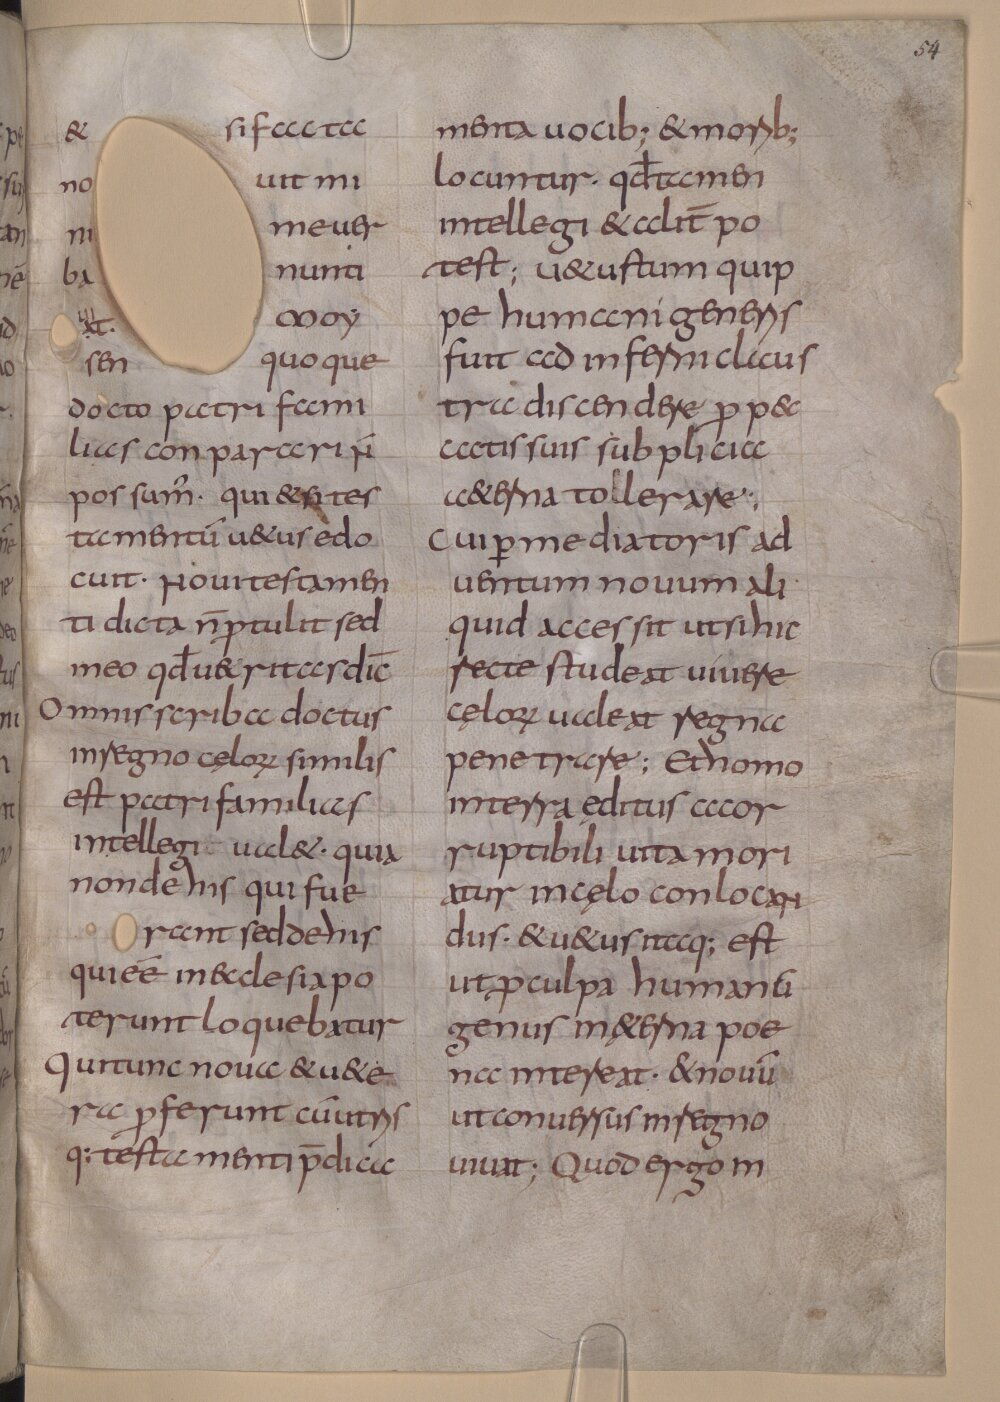 54
& si facta
no uit mi
ni me uer
ba nunti
at. moy
sen quoque
docto patri fami
lias conparari n̄
possum̄. qui & in tes
tamentū u&us edo
cuit. Noui testamen
ti dicta n̄ ꝑtulit sed
meo qđ u& ritas dic̄
Omnis scriba doctus
in regno cęloꝝ similis
est patri familias
intellegi ual&. quia
non de his qui fue
rant sed de his
qui eē in &clesia po
terunt loquebatur
Qui tunc noua & u&e
ra ꝓferunt cū utrius
q: testamenti p̄dica
menta uocib; & morib;
locuntur. qđ tamen
intellegi & alit̄ po
test; u&ustum quip
pe humani generis
fuit ad inferni claus
tra discendere ꝓ pec
catis suis subplicia
a&erna tollerare;
Cui ꝑ mediatoris ad
uentum nouum ali
quid accessit ut si hic
recte studeat uiuere
cęloꝝ ualeat regna
penetrare; Et homo
in terra editus acor
ruptibili uita mori
atur in cęlo conlocan
dus. & u&us itaq; est
ut ꝓ culpa humanū
genus in &erna poe
na intereat. & nouū
ut conuersus in regno
uiuat; Quod ergo in